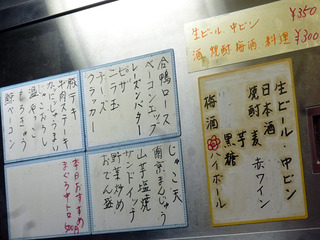 生ビール、中ビン ¥350
酒、焼酎、梅酒、料理 ¥300
合鴨ロース
ベーコンエッグ
レーズンバター
ピザ
ニラ玉
チーズ
クラッカー
豚テキ
牛肉ステーキ
冷やっこ
鯨ベーコン
生ビール・中ビン
日本酒
焼酎 麦 赤ワイン
芋
黒糖
梅酒 ハイボール
じゃこ天
南京まんじゅう
山芋塩焼
サンドイッチ
野菜炒め
おでん盛
本日おすすめ
まぐろ中トロ 500円